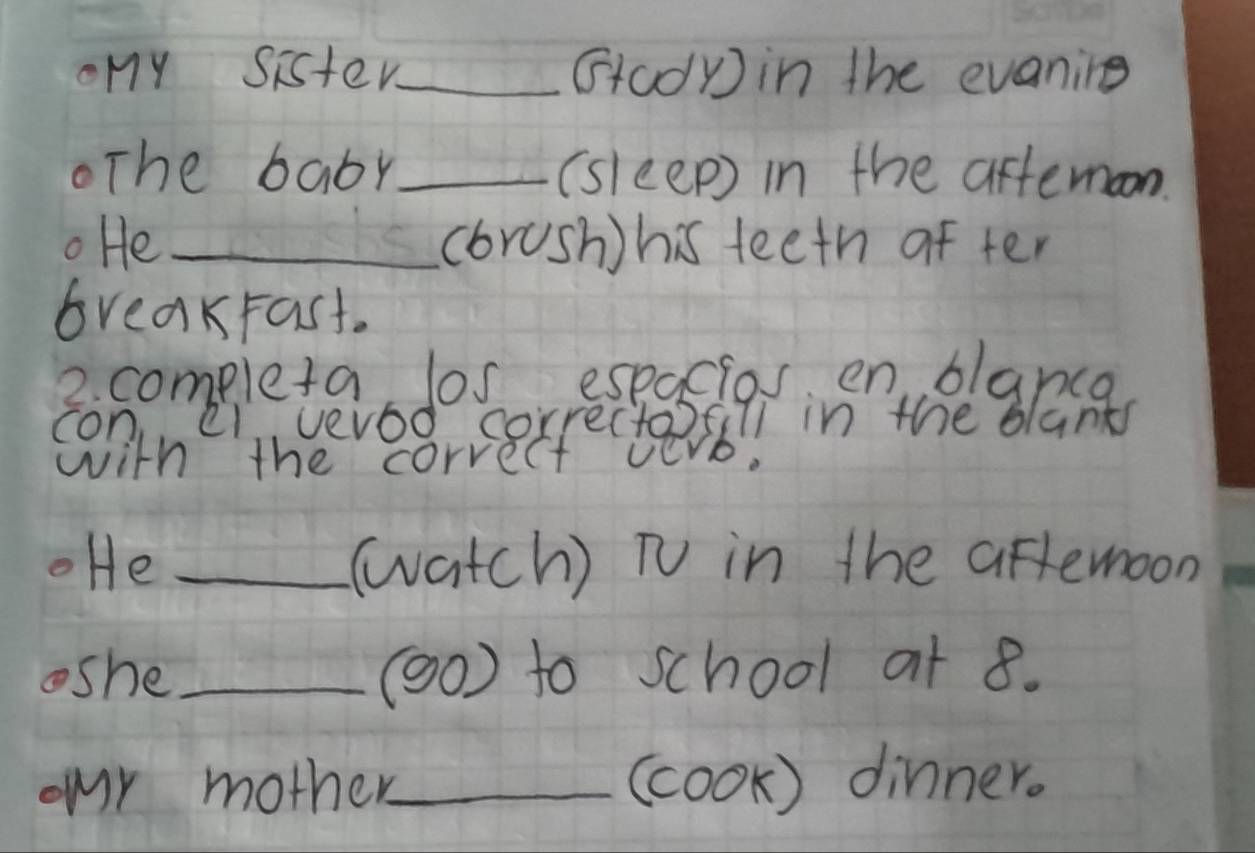 •MY Sister______(study) in the evaning
•The baby______(sleep) in the afternoon.
•He__________(brush) his teeth after
breakfast.
2. completa los espacios en blanco
con el verbo correcto fill in the blanks
with the correct verb.
•He ______(watch) TV in the afternoon
•she_______ (go) to school at 8.
•My mother________ (cook) dinner.